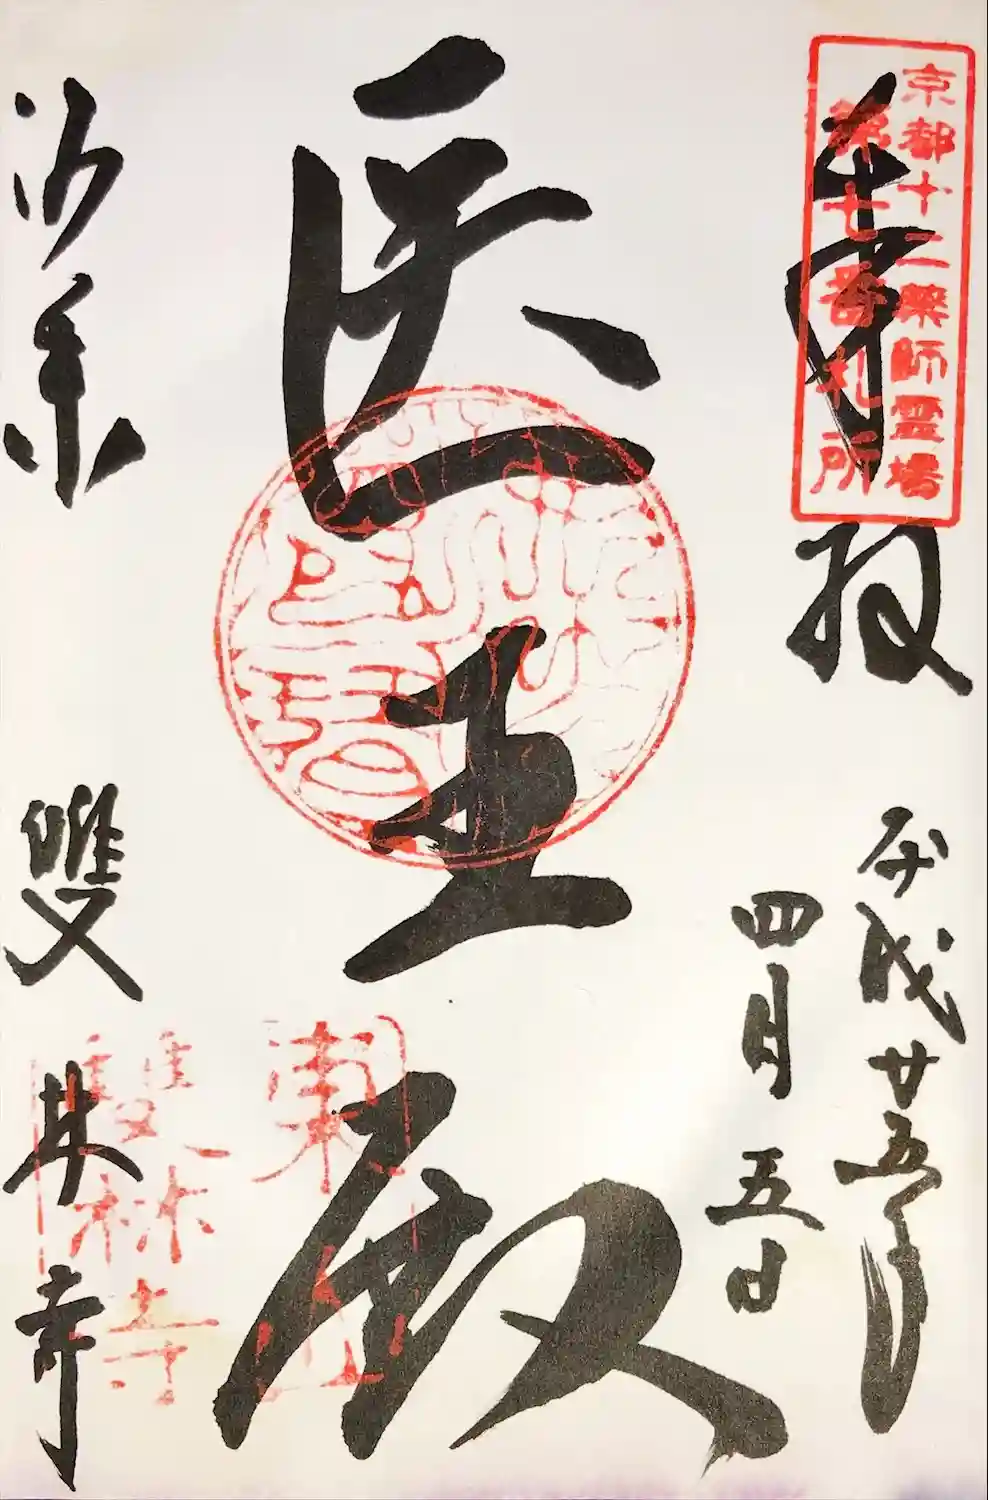 京都十二薬師霊場
第七番札所
奉拝
平成廿五年
四月五日
医王殿
洛東
雙林寺
東山
雙林寺